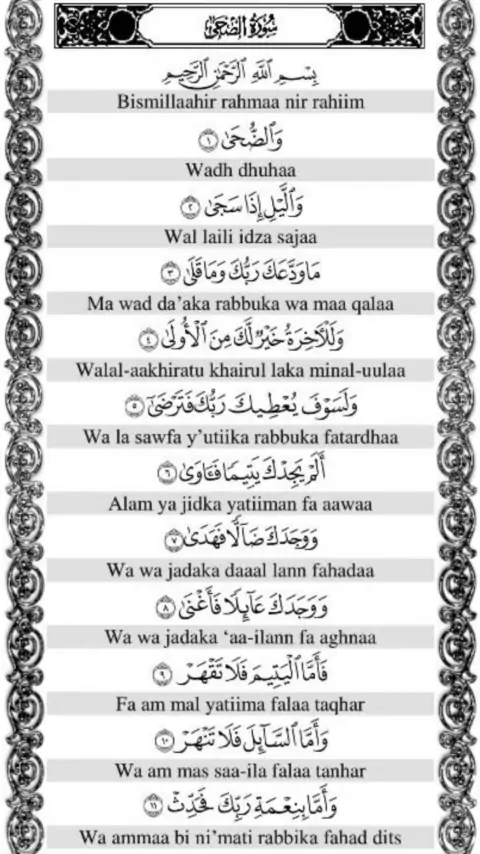 سُورَةُ الضُّحَىٰ
بِسْمِ اللَّهِ الرَّحْمَٰنِ الرَّحِيمِ
Bismillaahir rahmaa nir rahiim
وَالضُّحَىٰ ١
Wadh dhuhaa
وَاللَّيْلِ إِذَا سَجَىٰ ٢
Wal laili idza sajaa
مَا وَدَّعَكَ رَبُّكَ وَمَا قَلَىٰ ٣
Ma wad da’aka rabbuka wa maa qalaa
وَلَلْآخِرَةُ خَيْرٌ لَّكَ مِنَ الْأُولَىٰ ٤
Walal-aakhiratu khairul laka minal-uulaa
وَلَسَوْفَ يُعْطِيكَ رَبُّكَ فَتَرْضَىٰ ٥
Wa la sawfa y’utiika rabbuka fatardhaa
أَلَمْ يَجِدْكَ يَتِيمًا فَآوَىٰ ٦
Alam ya jidka yatiiman fa aawaa
وَوَجَدَكَ ضَالًّا فَهَدَىٰ ٧
Wa wa jadaka daaal lann fahadaa
وَوَجَدَكَ عَائِلًا فَأَغْنَىٰ ٨
Wa wa jadaka ‘aa-ilann fa aghnaa
فَأَمَّا الْيَتِيمَ فَلَا تَقْهَرْ ٩
Fa am mal yatiima falaa taqhar
وَأَمَّا السَّائِلَ فَلَا تَنْهَرْ ١٠
Wa am mas saa-ila falaa tanhar
وَأَمَّا بِنِعْمَةِ رَبِّكَ فَحَدِّثْ ١١
Wa ammaa bi ni’mati rabbika fahad dits